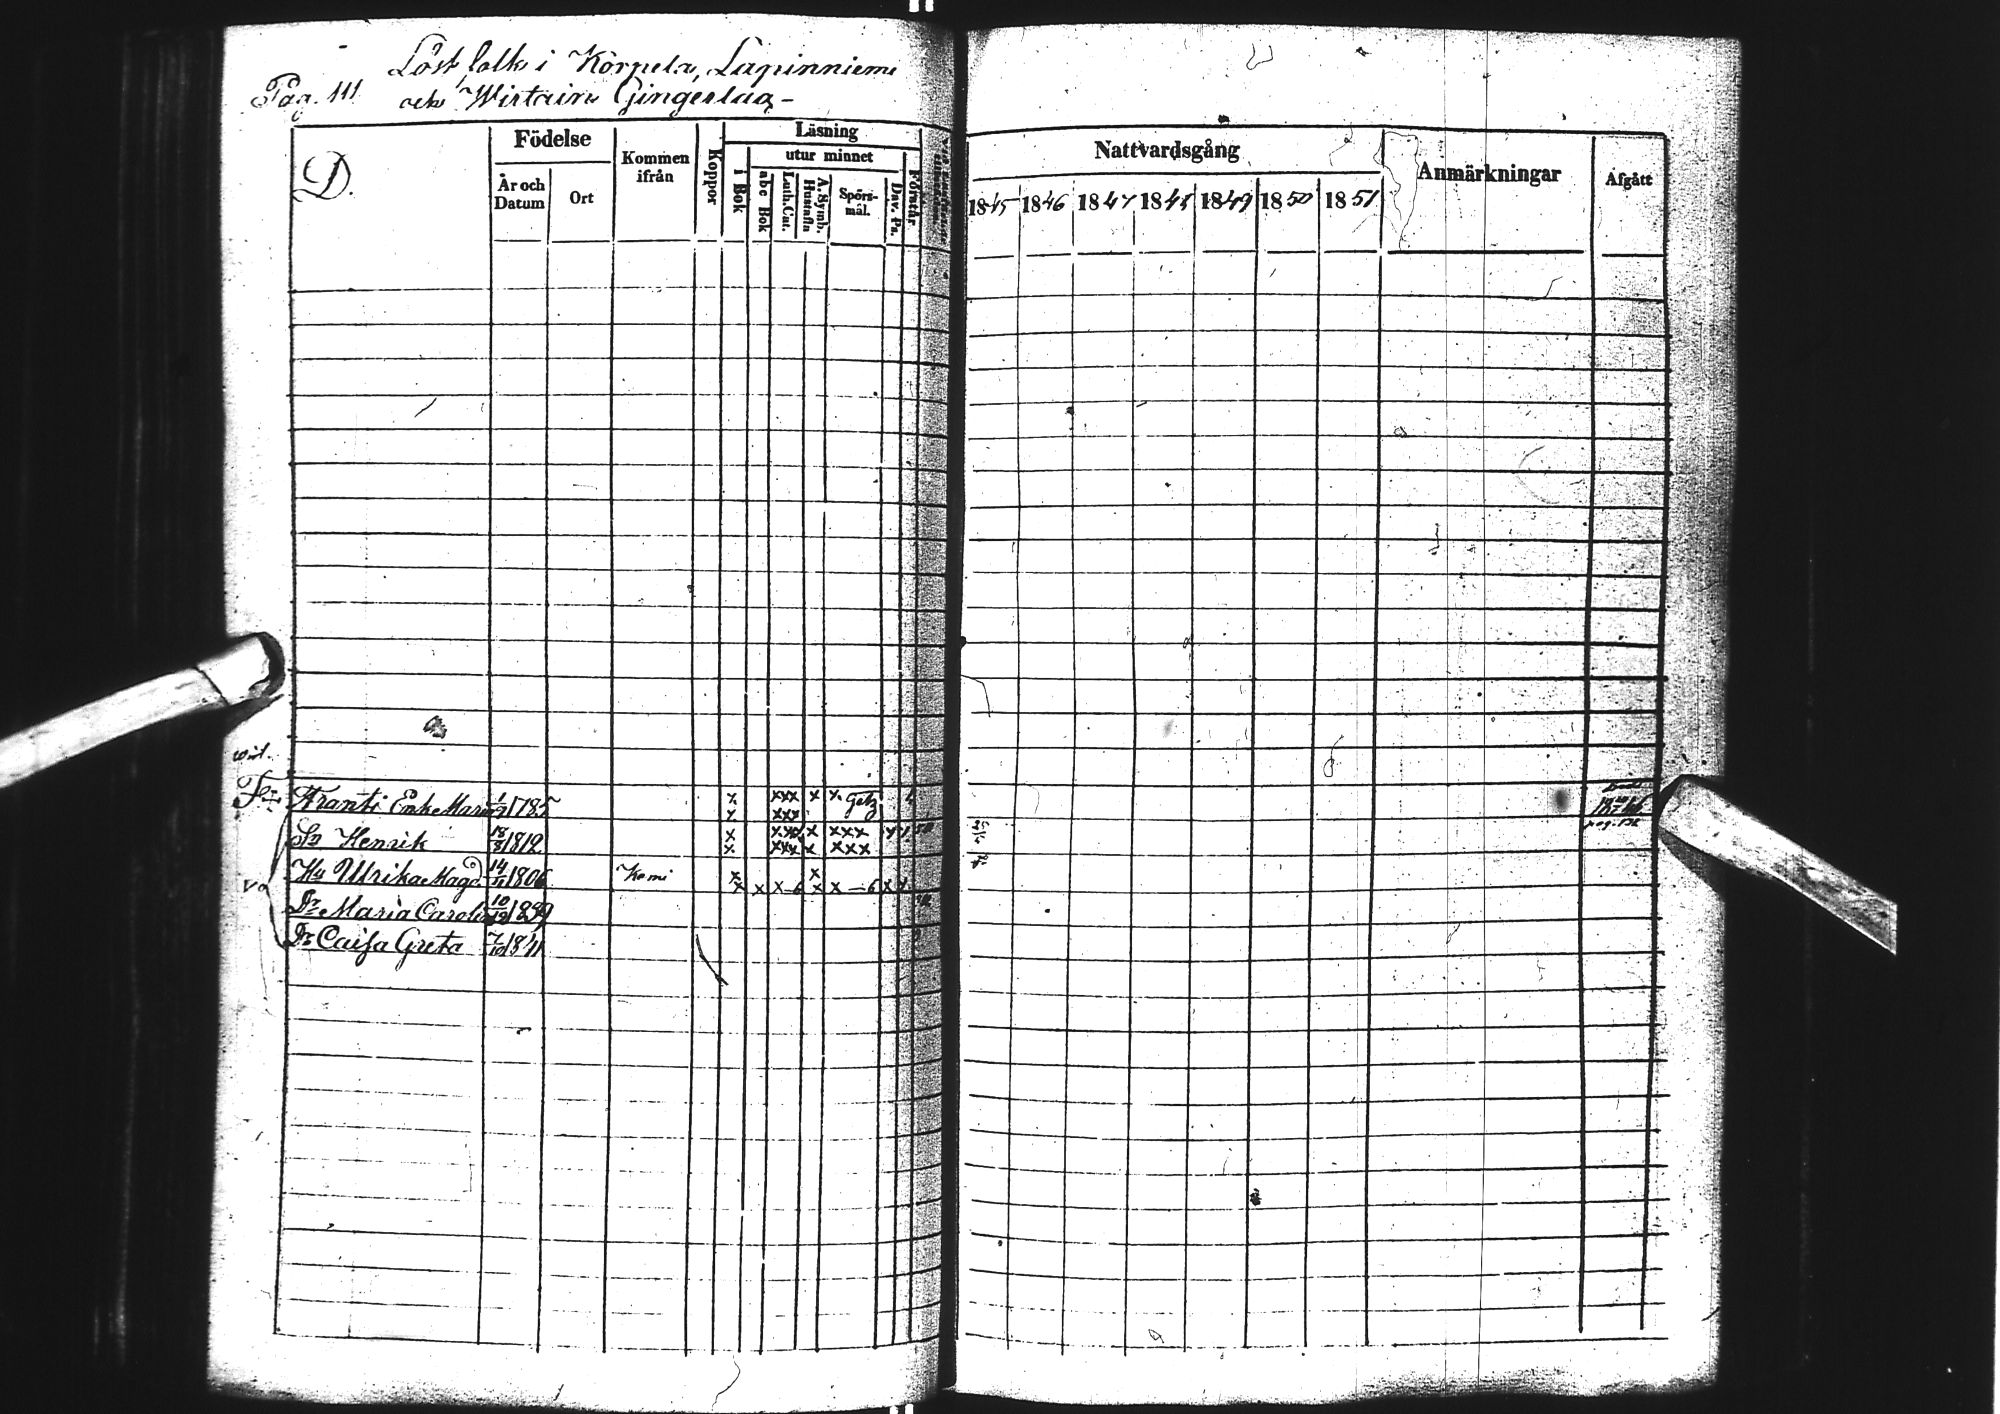 Löst folk i Körpela, Lapinniemi
Pag. 111 och Wirtain Gingerlag -
D.
Födelse
År och Datum
Ort
Kommen ifrån
Koppor
Läsning
i Bok
utur minnet
abc Bok
Luth. Cat.
A. Symb. Hustafla
Spörs-mål.
Dav. Ps.
Förstår
Nattvardsgång
1845 1846 1847 1848 1849 1850 1851
Anmärkningar
Afgått
Enk. Maria 1785 x xxx x x
x xxx
Sn Henrik 18/8 1812 x xxx x xxx
x xxx x xxx
Hu Ulrika Magd. 1806 Kemi x x
x x x 6 x x 6 x
Dr Maria Carol. 10/12 1839
Dr Caisa Greta 1841